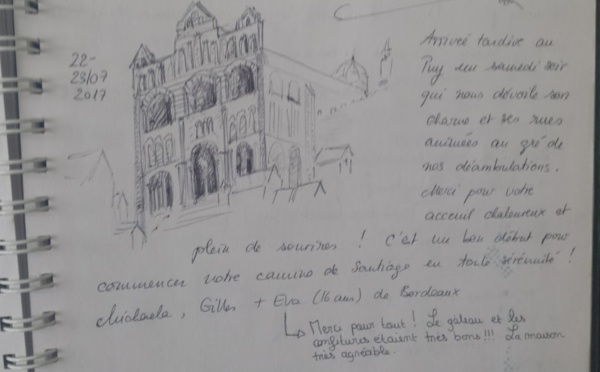 22-
23/07
2017
Arrivée tardive au
Puy un samedi soir
qui nous dévoile son
charme et ses rues
animées au gré de
nos déambulations.
Merci pour votre
acceuil chaleureux et
plein de sourires ! C'est un bon début pour
commencer notre camino de Santiago en toute sérénité !
Michaela, Gilles + Eva (16 ans) de Bordeaux
Merci pour tout ! Le gâteau et les
confitures étaient très bons !!! La maison
très agréable.